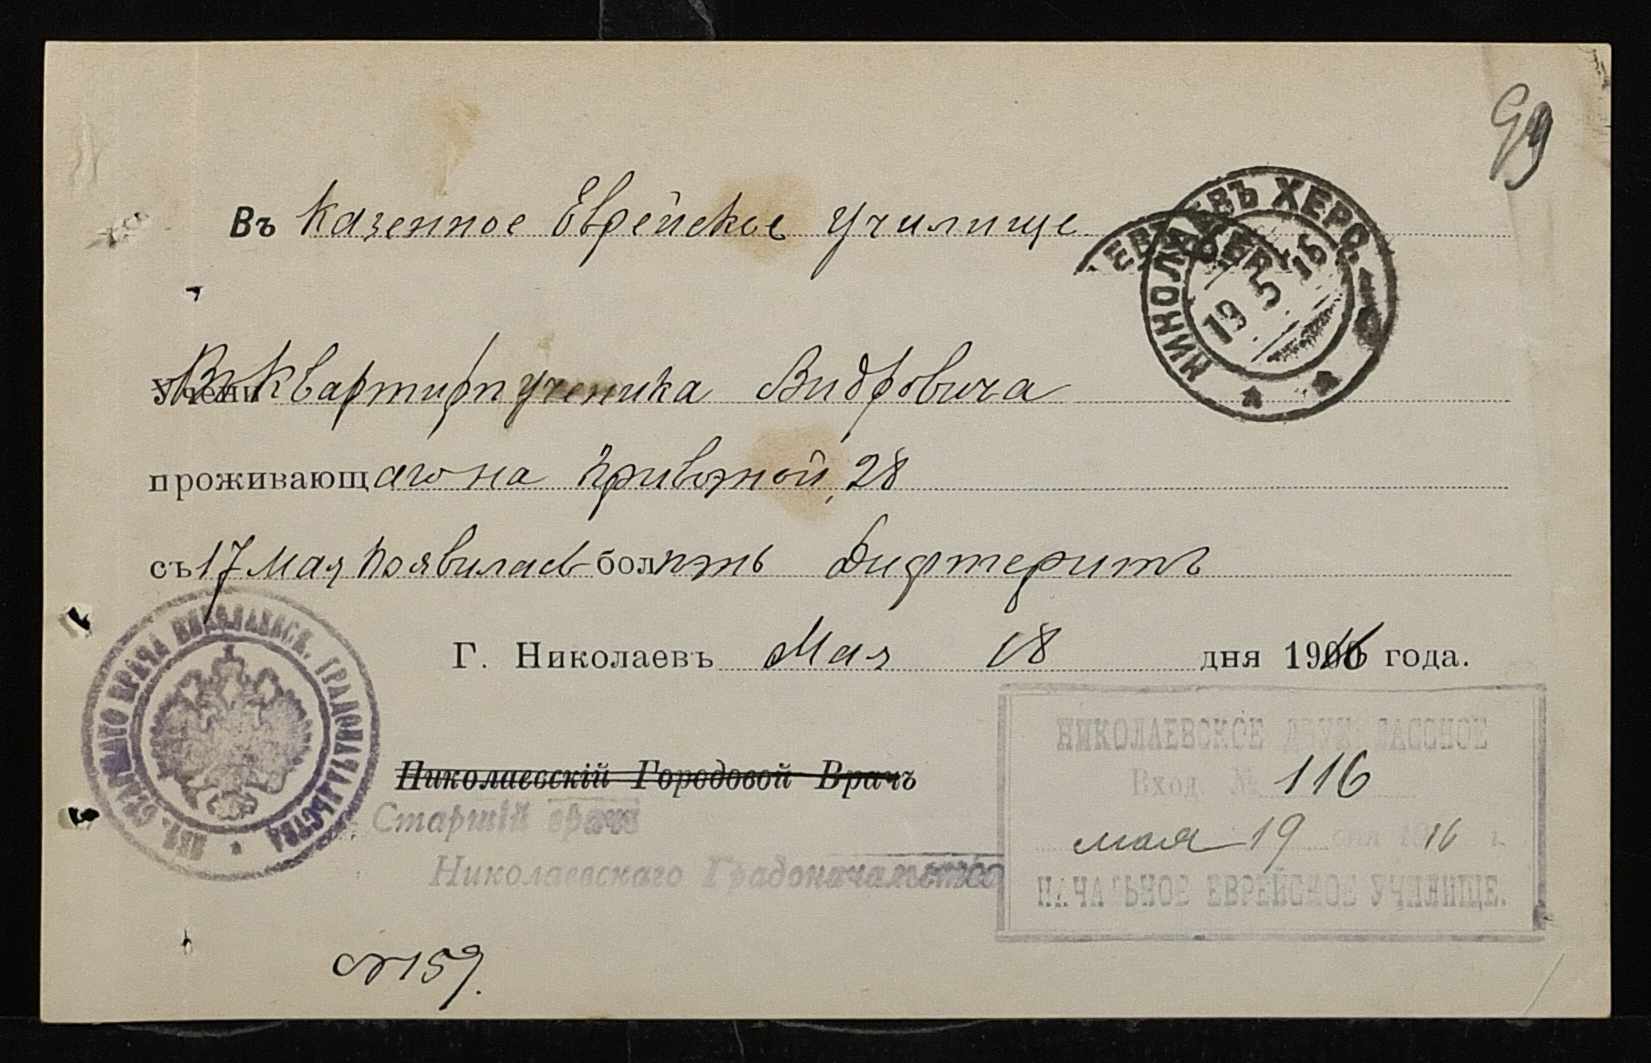 99
Въ Казенное Еврейское Училище
НИКОЛАЕВЪ ХЕРС.
19 5 16
Учени Въ квартирѣ ученика Видровича
проживающаго на Привозной, 28
съ 17 Мая появилась болѣзнь Дифтеритъ
Г. Николаевъ Мая 18 дня 1916 года.
ПЕЧ. СТАРШАГО ВРАЧА НИКОЛАЕВСК. ГРАДОНАЧАЛЬСТВА
Николаевскій Городовой Врачъ
Старшій врачъ
Николаевскаго Градоначальства
НИКОЛАЕВСКОЕ ДВУХКЛАССНОЕ
Вход. № 116
мая 19 дня 1916 г.
НАЧАЛЬНОЕ ЕВРЕЙСКОЕ УЧИЛИЩЕ.
№ 159.